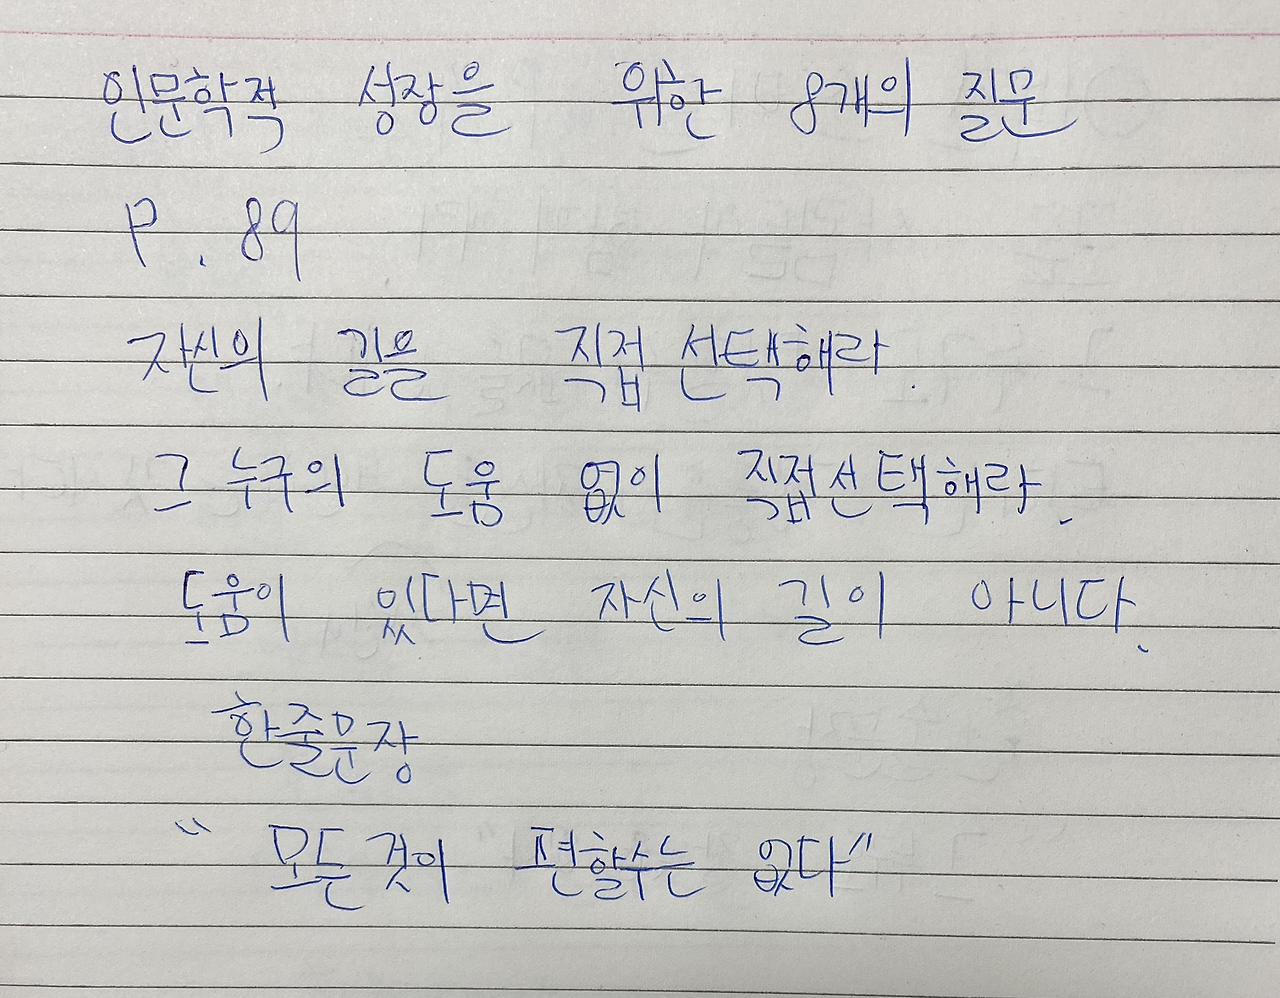 인문학적 성장을 위한 8개의 질문
P. 89
자신의 길을 직접 선택해라.
그 누구의 도움 없이 직접선택해라.
도움이 있다면 자신의 길이 아니다.
한줄문장
“ 모든 것이 편할수는 없다”